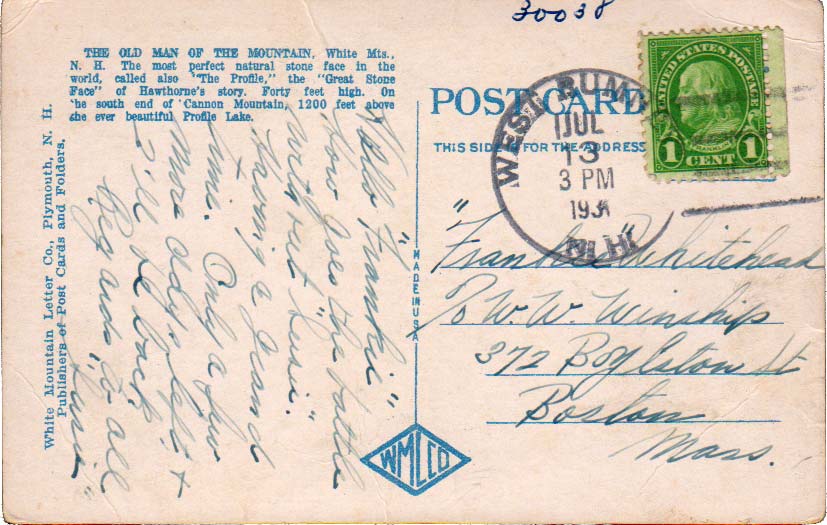 30038
THE OLD MAN OF THE MOUNTAIN, White Mts.,
N. H. The most perfect natural stone face in the
world, called also "The Profile," the "Great Stone
Face" of Hawthorne's story. Forty feet high. On
the south end of Cannon Mountain, 1200 feet above
the ever beautiful Profile Lake.
White Mountain Letter Co., Plymouth, N. H.
Publishers of Post Cards and Folders.
"Hello Frankie"
How goes the battle
without
Having a grand
time. Only a few
more days left &
I'll be back
Regards to all
MADE IN USA
WMLCO
POST CARD
THIS SIDE IS FOR THE ADDRESS
WEST RUM
JUL
13
3 PM
193
N. H.
UNITED STATES POSTAGE
FRANKLIN
1 CENT 1
"Frankie" Whitehead
℅ W. W. Winship
372 Boylston St
Boston
Mass.